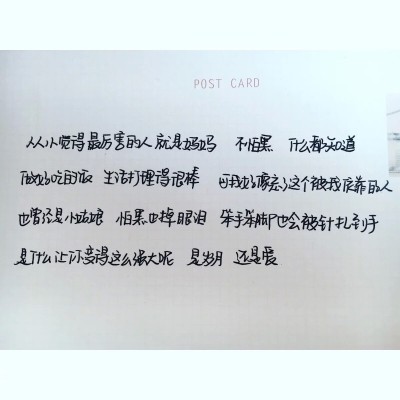 POST CARD
从小觉得最厉害的人就是妈妈 不怕黑 什么都知道
做好吃的饭 生活打理得很棒 可我好像忘了这个被我依靠的人
也曾经是小姑娘 怕黑也掉眼泪 笨手笨脚也会被针扎到手
是什么让你变得这么强大呢 是岁月 还是爱